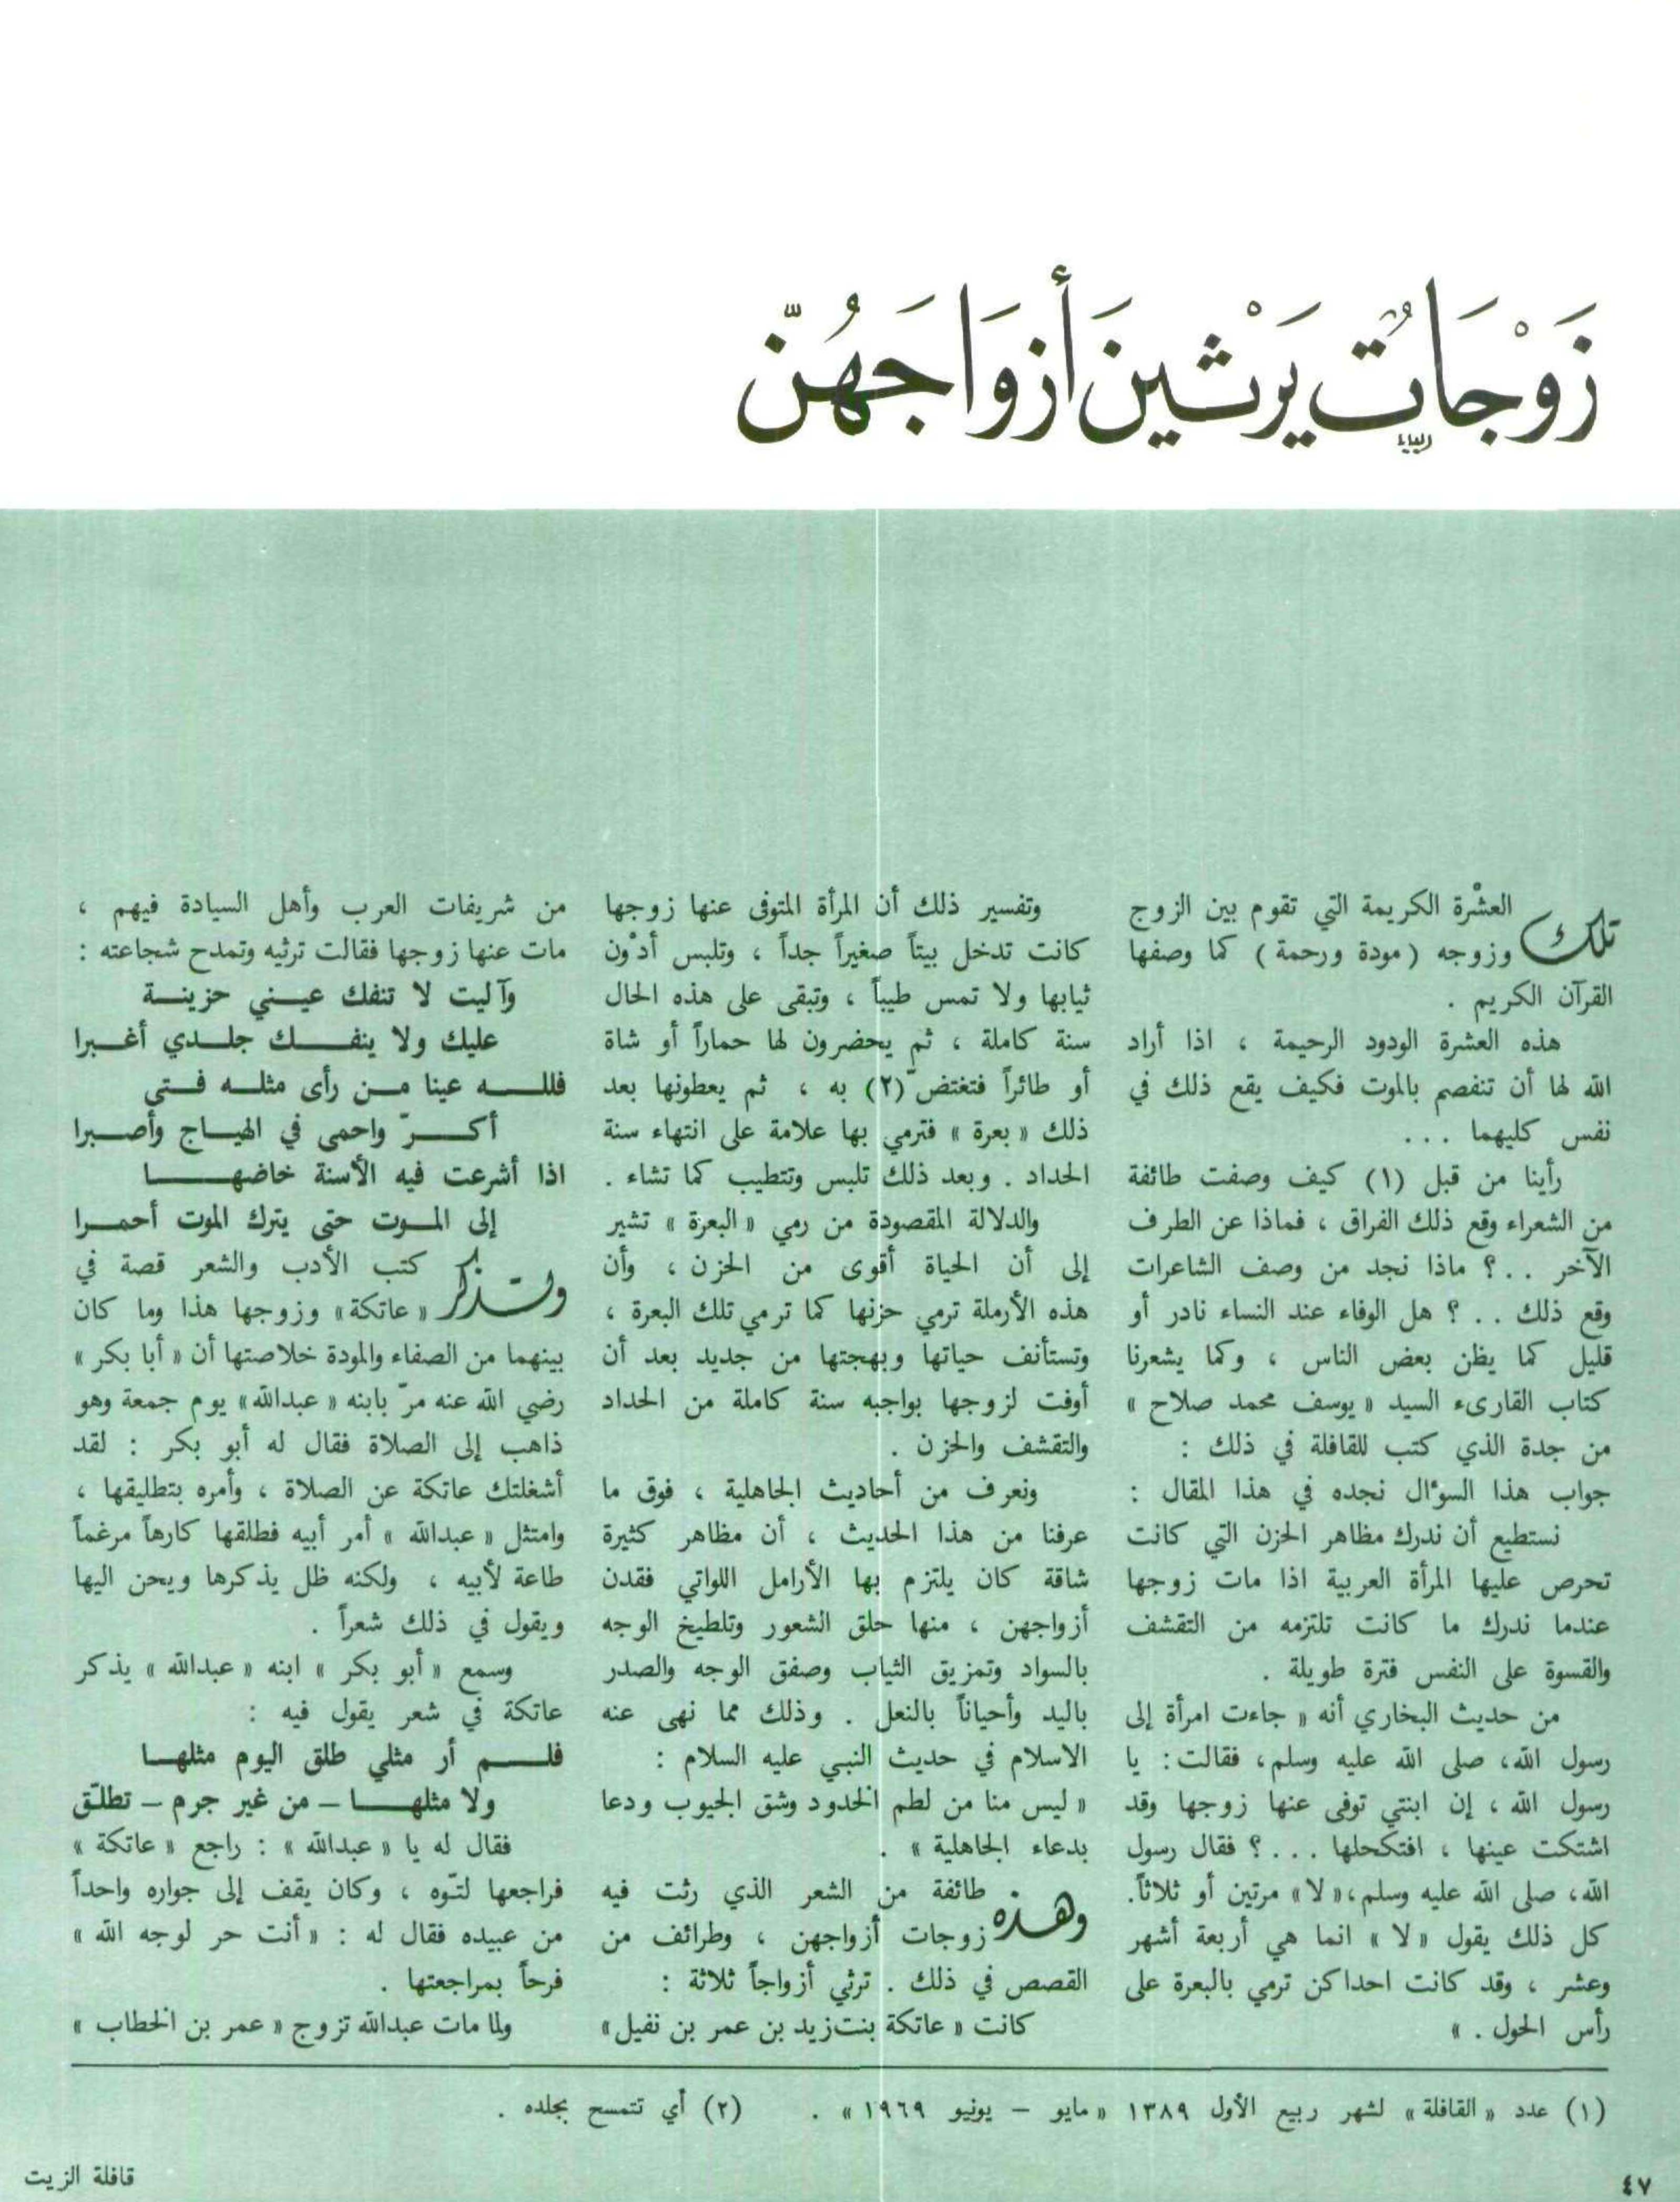 زَوْجَاتٌ يَرْثِينَ أَزْوَاجَهُنّ
تلك العشْرة الكريمة التي تقوم بين الزوج
وزوجه (مودة ورحمة) كما وصفها
القرآن الكريم .
هذه العشرة الودود الرحيمة ، اذا أراد
الله لها أن تنفصم بالموت فكيف يقع ذلك في
نفس كليهما ...
رأينا من قبل (١) كيف وصفت طائفة
من الشعراء وقع ذلك الفراق ، فماذا عن الطرف
الآخر ..؟ ماذا نجد من وصف الشاعرات
وقع ذلك ..؟ هل الوفاء عند النساء نادر أو
قليل كما يظن بعض الناس ، وكما يشعرنا
كتاب القارىء السيد « يوسف محمد صلاح »
من جدة الذي كتب للقافلة في ذلك :
جواب هذا السؤال نجده في هذا المقال :
نستطيع أن ندرك مظاهر الحزن التي كانت
تحرص عليها المرأة العربية اذا مات زوجها
عندما ندرك ما كانت تلتزمه من التقشف
والقسوة على النفس فترة طويلة .
من حديث البخاري أنه « جاءت امرأة إلى
رسول الله، صلى الله عليه وسلم، فقالت: يا
رسول الله ، إن ابنتي توفى عنها زوجها وقد
اشتكت عينها ، افتكحلها ...؟ فقال رسول
الله، صلى الله عليه وسلم،« لا» مرتين أو ثلاثاً.
كل ذلك يقول « لا » انما هي أربعة أشهر
وعشر ، وقد كانت احداكن ترمي بالبعرة على
رأس الحول . »
وتفسير ذلك أن المرأة المتوفى عنها زوجها
كانت تدخل بيتاً صغيراً جداً ، وتلبس أدْون
ثيابها ولا تمس طيباً ، وتبقى على هذه الحال
سنة كاملة ، ثم يحضرون لها حماراً أو شاة
أو طائراً فتغتضّ (٢) به ، ثم يعطونها بعد
ذلك « بعرة » فترمي بها علامة على انتهاء سنة
الحداد . وبعد ذلك تلبس وتتطيب كما تشاء .
والدلالة المقصودة من رمي « البعرة » تشير
إلى أن الحياة أقوى من الحزن ، وأن
هذه الأرملة ترمي حزنها كما ترمي تلك البعرة ،
وتستأنف حياتها وبهجتها من جديد بعد أن
أوفت لزوجها بواجبه سنة كاملة من الحداد
والتقشف والحزن .
ونعرف من أحاديث الجاهلية ، فوق ما
عرفنا من هذا الحديث ، أن مظاهر كثيرة
شاقة كان يلتزم بها الأرامل اللواتي فقدن
أزواجهن ، منها حلق الشعور وتلطيخ الوجه
بالسواد وتمزيق الثياب وصفق الوجه والصدر
باليد وأحياناً بالنعل . وذلك مما نهى عنه
الاسلام في حديث النبي عليه السلام :
« ليس منا من لطم الخدود وشق الجيوب ودعا
بدعاء الجاهلية » .
وهذه طائفة من الشعر الذي رثت فيه
زوجات أزواجهن ، وطرائف من
القصص في ذلك . ترثي أزواجاً ثلاثة :
كانت « عاتكة بنت زيد بن عمر بن نفيل»
من شريفات العرب وأهل السيادة فيهم ،
مات عنها زوجها فقالت ترثيه وتمدح شجاعته :
وآليت لا تنفك عيني حزينة
عليك ولا ينفك جلدي أغبرا
فلله عينا من رأى مثله فتى
أكرّ واحمى في الهياج وأصبرا
اذا أشرعت فيه الأسنة خاضها
إلى الموت حتى يترك الموت أحمرا
وتذكر كتب الأدب والشعر قصة في
« عاتكة » وزوجها هذا وما كان
بينهما من الصفاء والمودة خلاصتها أن « أبا بكر »
رضي الله عنه مرّ بابنه « عبدالله » يوم جمعة وهو
ذاهب إلى الصلاة فقال له أبو بكر : لقد
أشغلتك عاتكة عن الصلاة ، وأمره بتطليقها ،
وامتثل « عبدالله » أمر أبيه فطلقها كارهاً مرغماً
طاعة لأبيه ، ولكنه ظل يذكرها ويحن اليها
ويقول في ذلك شعراً .
وسمع « أبو بكر » ابنه « عبدالله » يذكر
عاتكة في شعر يقول فيه :
فلم أر مثلي طلق اليوم مثلها
ولا مثلها – من غير جرم – تطلّق
فقال له يا « عبدالله » : راجع « عاتكة »
فراجعها لتّوه ، وكان يقف إلى جواره واحداً
من عبيده فقال له : « أنت حر لوجه الله »
فرحاً بمراجعتها .
ولما مات عبدالله تزوج « عمر بن الخطاب »
(١) عدد « القافلة » لشهر ربيع الأول ١٣٨٩ « مايو – يونيو ١٩٦٩ » . (٢) أي تتمسح بجلده .
٤٧ قافلة الزيت